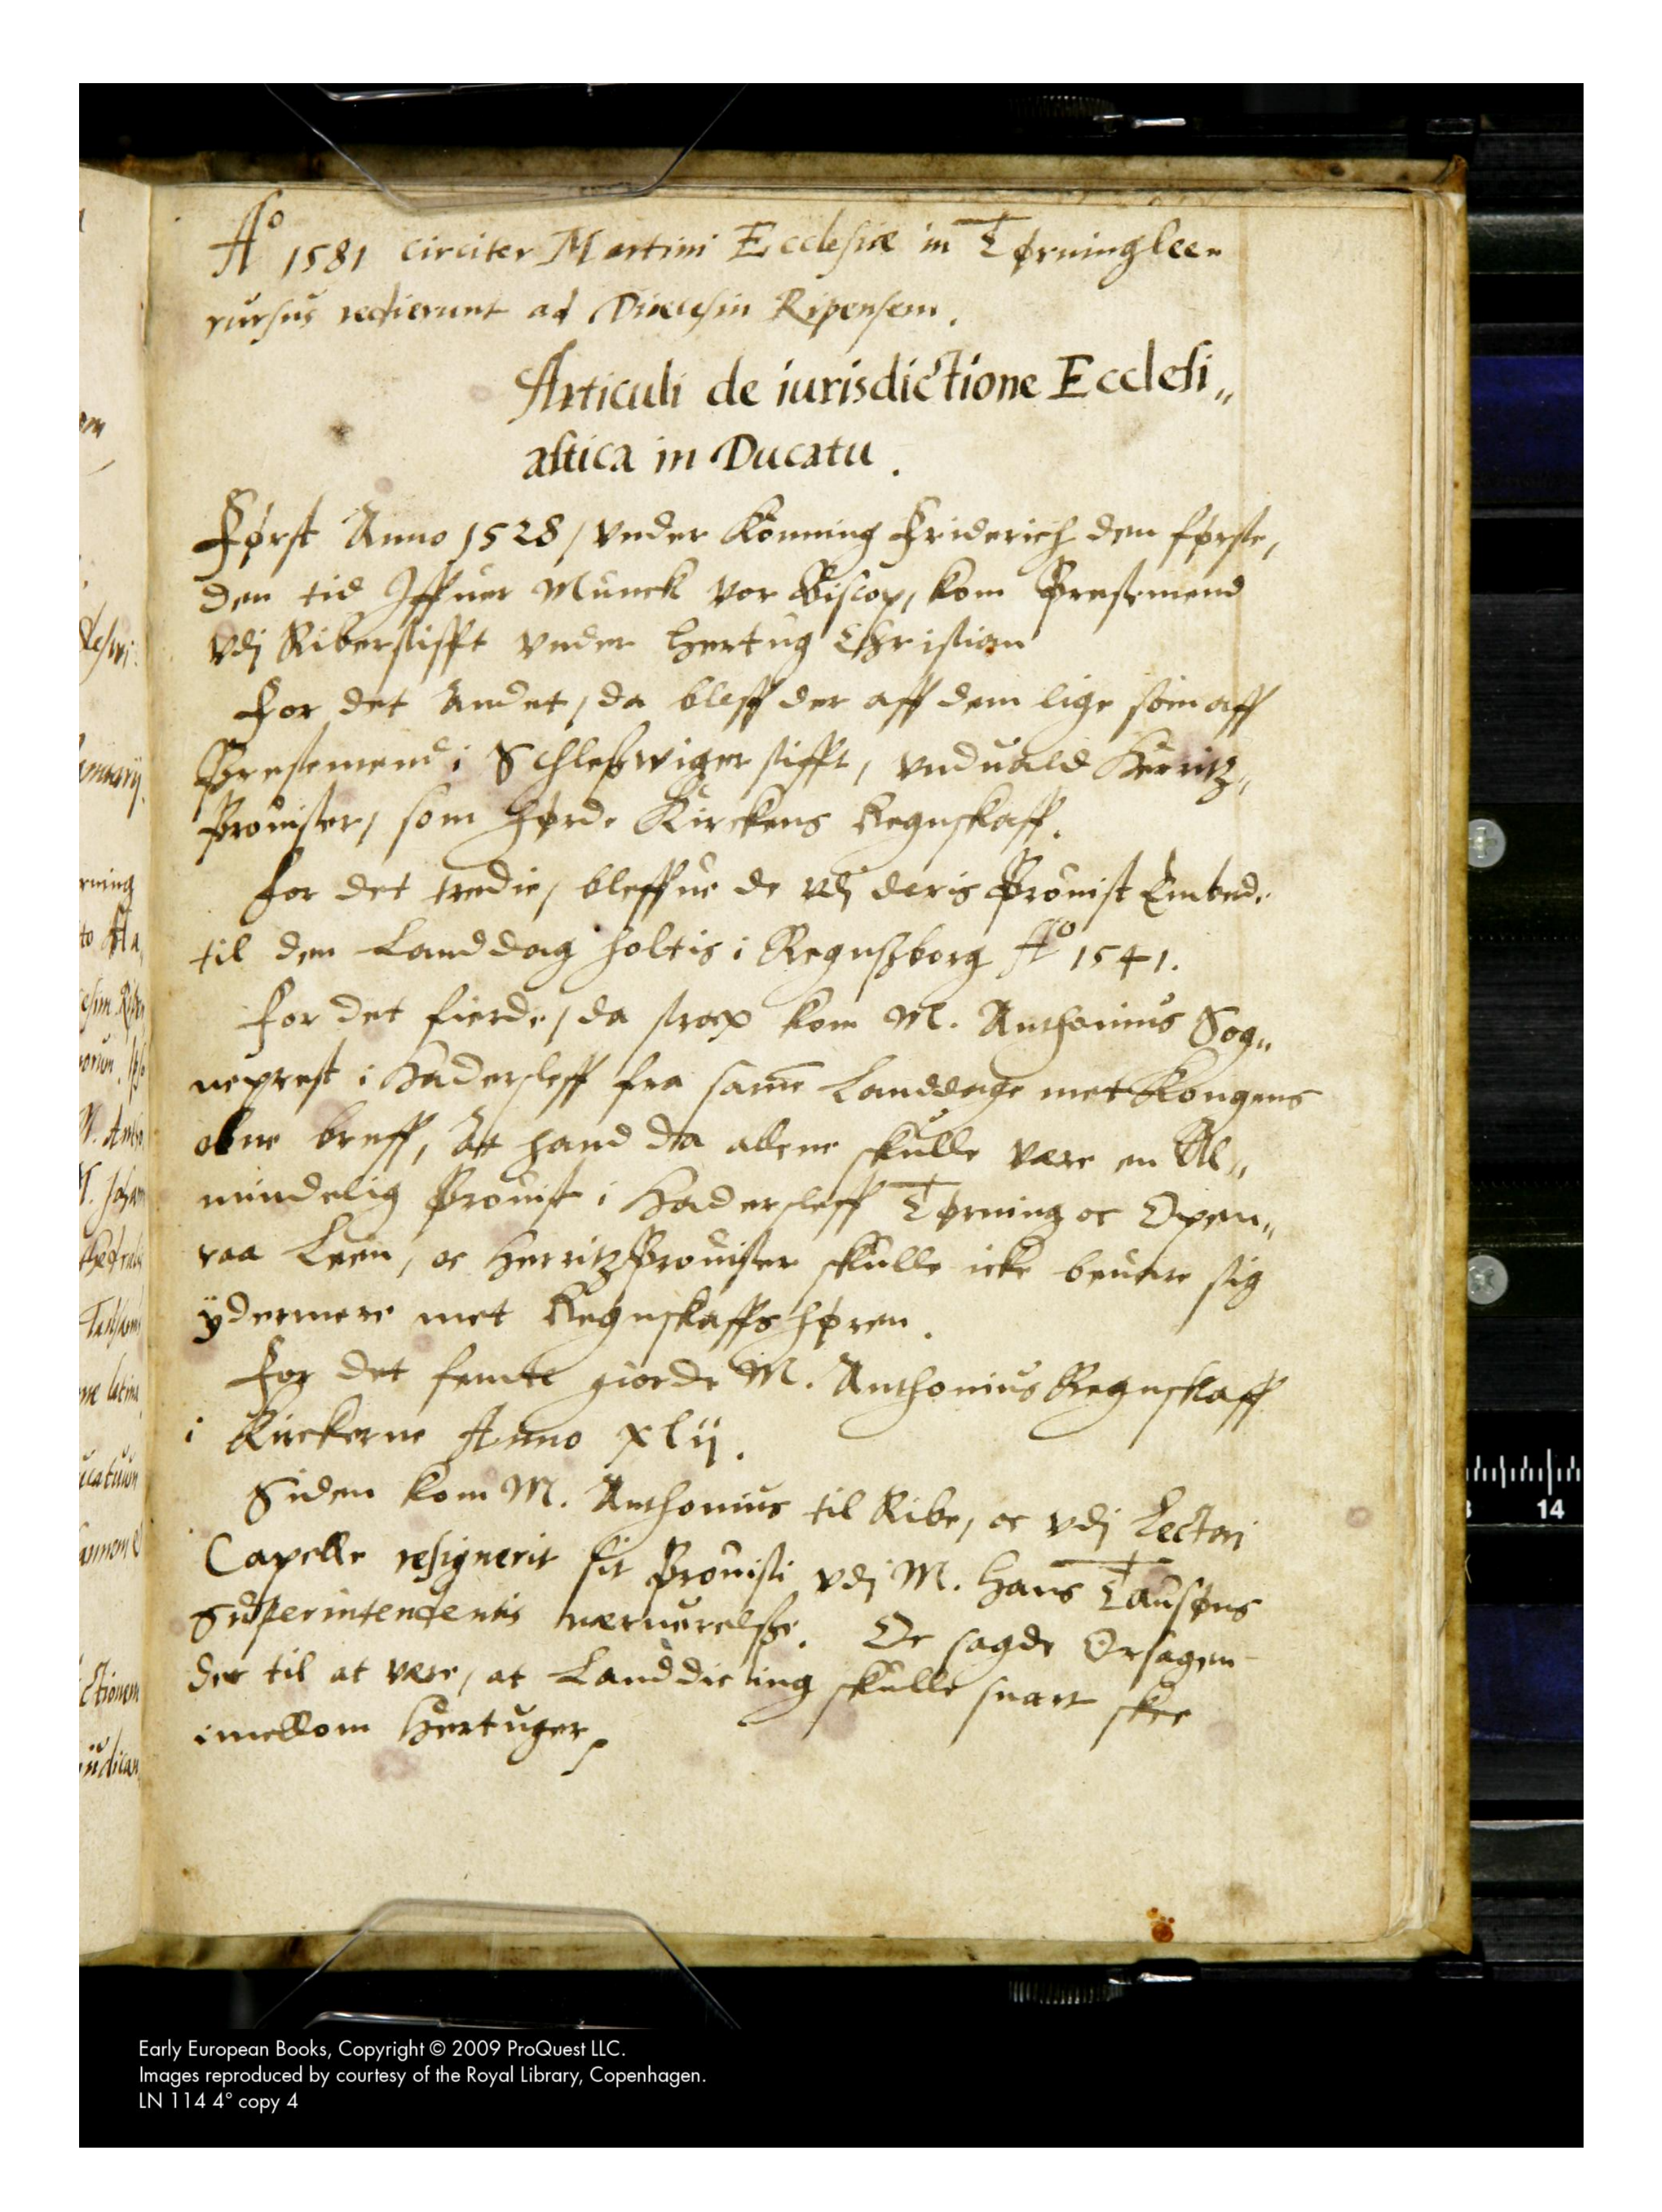 Aº 1581 circiter Martini Ecclesiæ in Tørningleen
rursus redierunt ad Diœcesin Ripensem.
Articuli de iurisdictione Ecclesi„
astica in Ducatu.
Først Anno 1528, vnder Konning Friderich den første,
den tid Iffuer Munck vor Biscop, kom Prestemend
vdj Riberstifft vnder Hertug Christian
For det Andet, da bleff der aff dem lige som aff
Prestemend i Schleßwiger stifft, vduald Herritz„
Prouister, som hørde Kirckens Regnskaff.
For det tredie, bleffue de vdj deris Prouist Embede
til den Landdag holtis i Regnßborg Aº 1541.
For det fierde, da strax kom M. Anthonius Sog„
neprest i Hadersleff fra sam̄e Landdage met Kongens
obne breff, At hand da allene skulle være en Al„
mindelig Prouist i Hadersleff Tørning oc Open„
raa Leen, oc HerritzProuister skulle icke beuare sig
ÿdermere met Regnskaffs høren.
For det femte giorde M. Anthonius Regnskaff
i Kirckerne Anno xlij.
Siden kom M. Anthonius til Ribe, oc vdj Lectori
Capelle resignerit sit Prouisti vdj M. Hans Tausøns
Superintendentis næruerelße. Oc sagde Orsagen
der til at være, at Landdieling skulle snart skee
imellom Hertuger
rning
M. Antho
ucatuum
ctionem
Early European Books, Copyright © 2009 ProQuest LLC.
Images reproduced by courtesy of the Royal Library, Copenhagen.
LN 114 4° copy 4
14